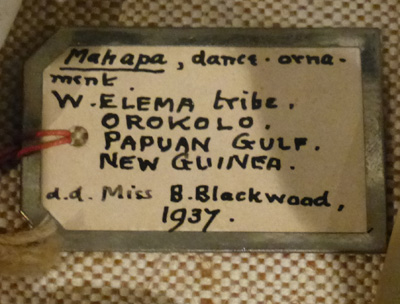 Mahapa, dance-orna-
ment.
W. ELEMA tribe.
OROKOLO.
PAPUAN GULF.
NEW GUINEA.
d.d. Miss B. Blackwood,
1937.